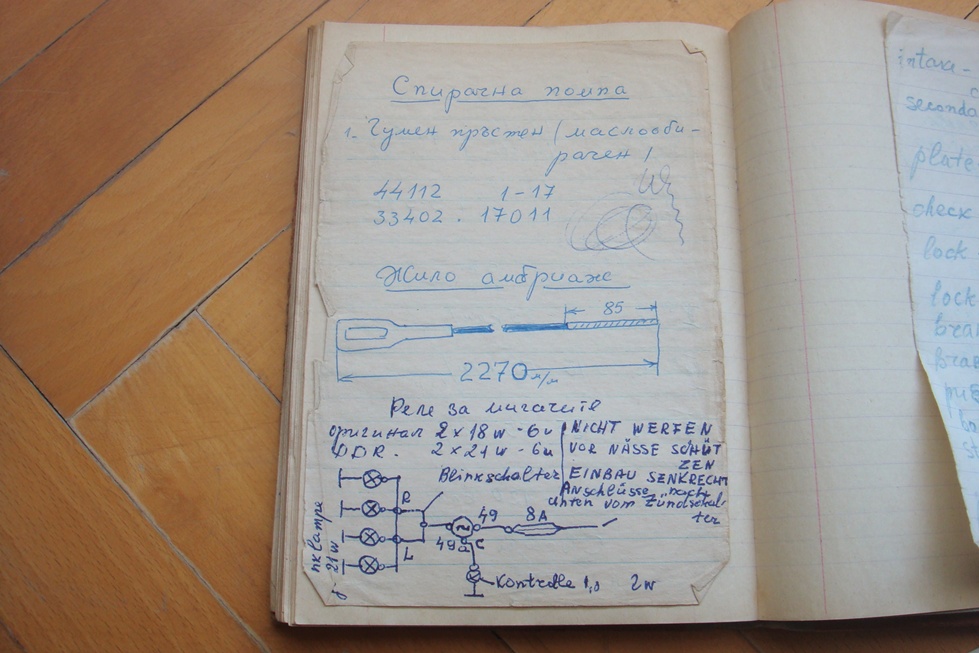 Спирачна помпа
1. Гумен пръстен (маслооби-
рачен)
44112 1-17
33402. 17011
Жило амбриаж
85
2270 м/м
Реле за мигачите
оригинал 2x18w - 6v
DDR. 2x21w - 6v
NICHT WERFEN
VOR NÄSSE SCHÜT
ZEN
EINBAU SENKRECHT
Anschlüsse "nach
unten vom Zündschal-
ter
Blinkschalter
R
L
49
8A
49a
C
21w
Kontrolle
2w
intake-
seconda
plate
check
lock
lock
bra
bra